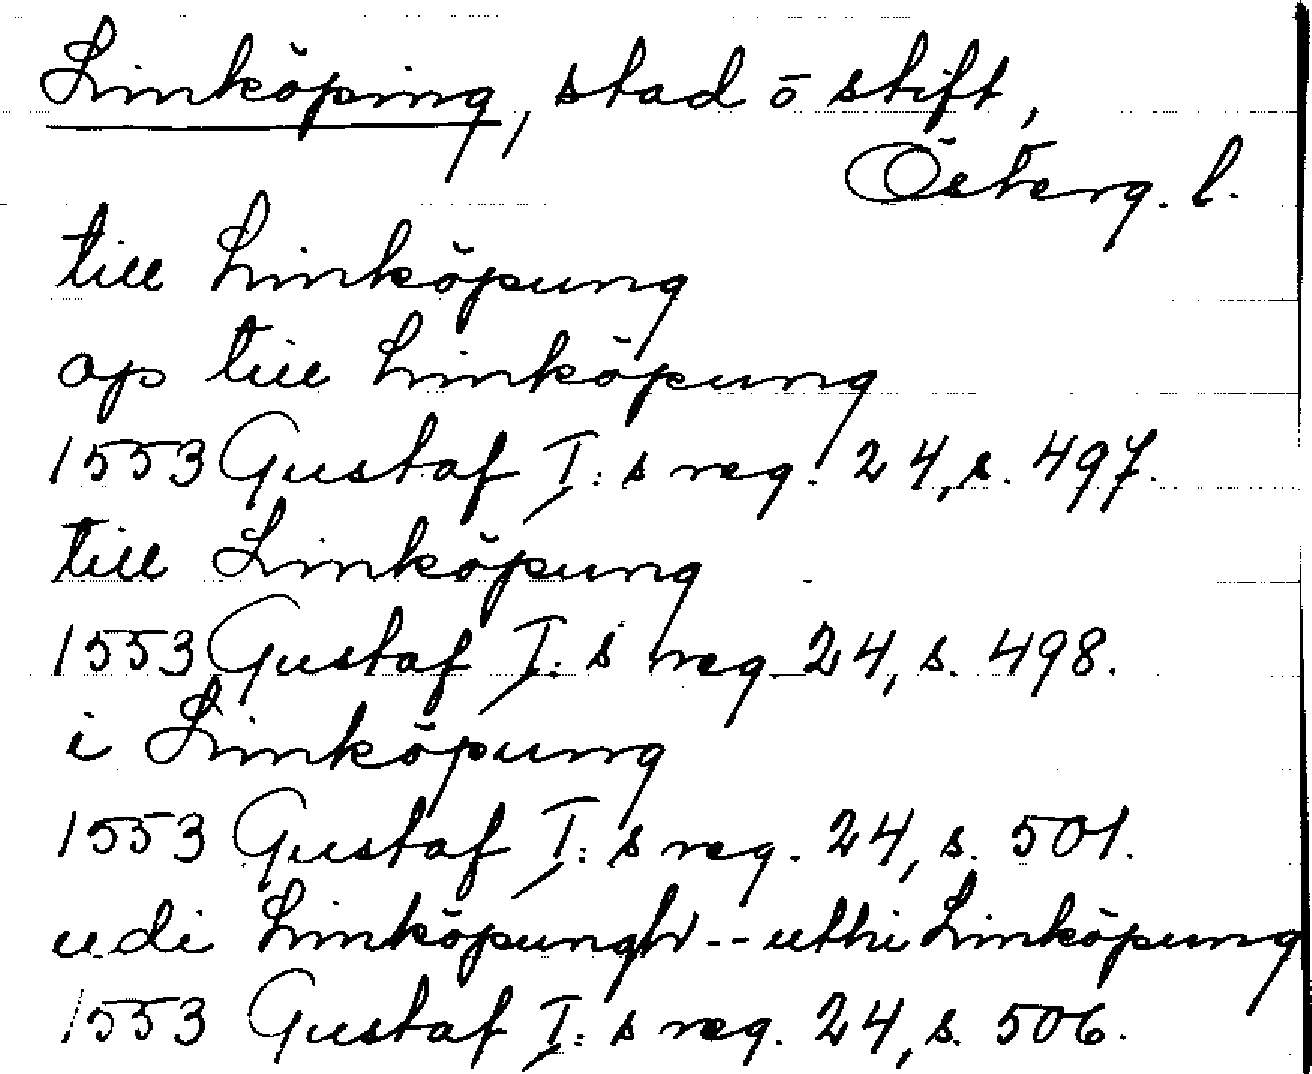 Linköping, stad o stift,
Österg. l.
till Linköpung
op till Linköpung
1553 Gustaf I:s reg. 24, s. 497.
till Linköpung
1553 Gustaf I:s reg. 24, s. 498.
i Linköpung
1553 Gustaf I:s reg. 24, s. 501.
udi Linköpungh -- uthi Linköpung
1553 Gustaf I:s reg. 24, s. 506.